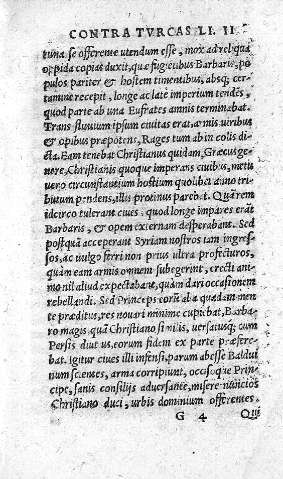 CONTRA TVRCAS LI. II
tuna se offerente utendum esse, mox ad reliqua
oppida copias duxit, quæ fugiētibus Barbaris, po
pulos pariter & hostem timentibus, absq; cer
tamine recepit, longe ac late imperium tendēs,
quod parte ab una Eufrates amnis terminabat.
Trans fluuium ipsum ciuitas erat, armis uiribus
& opibus præpotens, Rages tum ab incolis di
cta. Eam tenebat Christianus quidam, Græcus ge
nere. Christianis quoque imperans ciuibus, metu
uero circunstantium hostium quolibet anno tri
butum pendens, illis protinus parebat. Quā rem
idcirco tulerant ciues, quod longe impares erāt
Barbaris, & opem externam desperabant. Sed
postquā acceperunt Syriam nostros iam ingres
sos, ac uulgo ferri non prius ultro profecturos,
quàm eam armis omnem subegerint, erecti ani
mo nil aliud expectabant, quàm dari occasionem
rebellandi. Sed Princeps eorū aba quadam men
te præditus, res nouari minime cupiebat, Barba
ro magis quā Christiano similis, uersatusq; cum
Persis diut us, eorum fidem ex parte præfere
bat. Igitur ciues illi infensi, parum abesse Baldui
num scientes, arma corripiunt, occisoque Prin
cipe, sanis consilijs aduersante, misere nuncios
Christiano duci, urbis dominium offerentes.
G 4 Qui